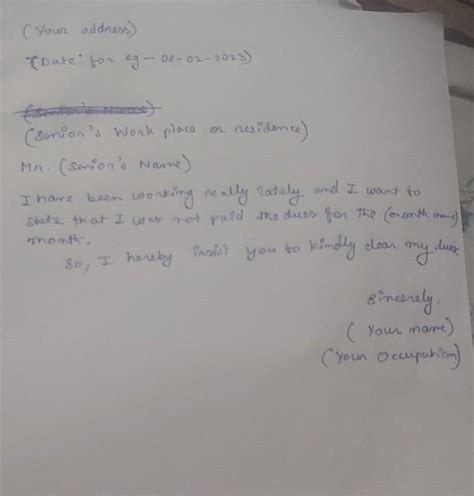 (Your address)
(Date: for eg - 08-02-2023)
(Senior's Name)
(Senior's Work place or residence)
Mr. (Senior's Name)
I have been working really lately and I want to
state that I was not paid the dues for the (month name)
month.
So, I hereby insist you to kindly clear my dues.
Sincerely,
(Your name)
(Your Occupation)